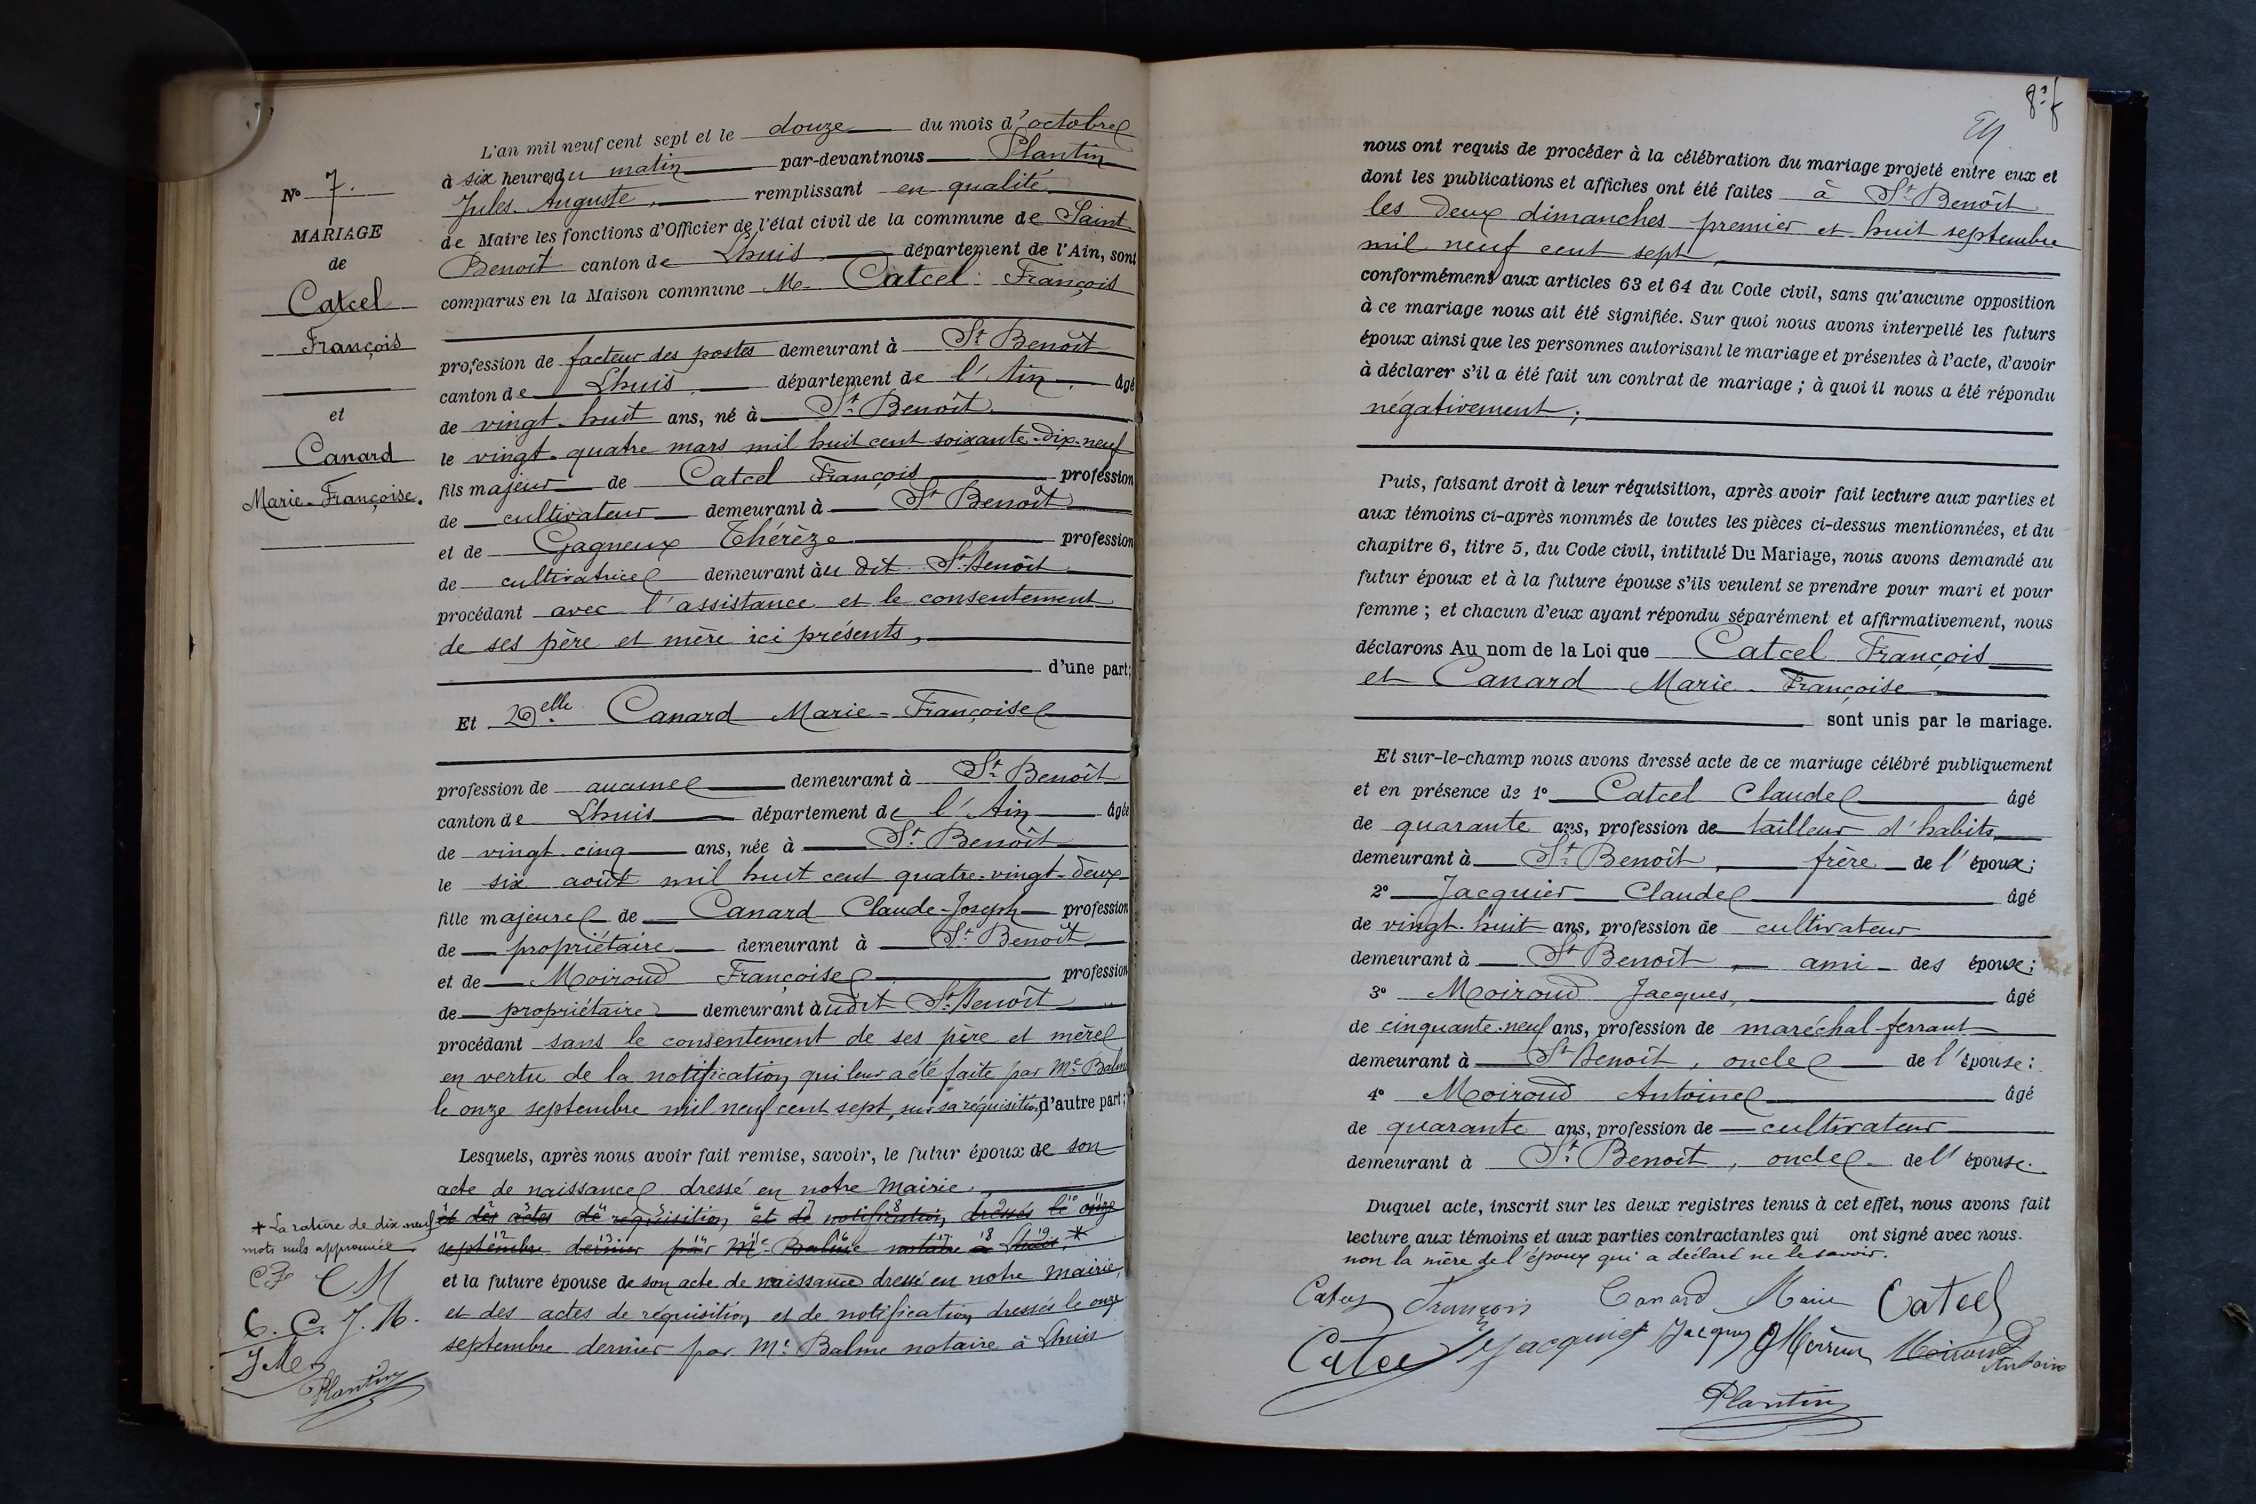 N° 7.
MARIAGE
de
Catcel
François
et
Canard
Marie-Françoise.
L'an mil neuf cent sept et le douze du mois d'octobre
à six heures du matin par-devant nous Plantin
Jules Auguste, remplissant en qualité
de Maire les fonctions d'Officier de l'état civil de la commune de Saint
Benoît canton de Lhuis département de l'Ain, sont
comparus en la Maison commune Mr Catcel François
profession de facteur des postes demeurant à St Benoît
canton de Lhuis département de l'Ain, âgé
de vingt-huit ans, né à St Benoît
le vingt-quatre mars mil huit cent soixante-dix-neuf
fils majeur de Catcel François profession
de cultivateur demeurant à St Benoît
et de Gagneux Thérèze profession
de cultivatrice demeurant àu dit St Benoît
procédant avec l'assistance et le consentement
de ses père et mère ici présents,
d'une part;
Et Delle Canard Marie-Françoise
profession de aucune demeurant à St Benoît
canton de Lhuis département de l'Ain âgée
de vingt-cinq ans, née à St Benoît
le six août mil huit cent quatre-vingt-deux
fille majeure de Canard Claude-Joseph profession
de propriétaire demeurant à St Benoît
et de Moiroud Françoise profession
de propriétaire demeurant àudit St Benoît
procédant sans le consentement de ses père et mère
en vertu de la notification qui leur a été faite par Me Balme
le onze septembre mil neuf cent sept, sur sa réquisition, d'autre part;
Lesquels, après nous avoir fait remise, savoir, le futur époux de son
acte de naissance dressé en notre Mairie,
et des actes de réquisition et de notification, dressés le onze
septembre dernier par Me Balme notaire à Lhuis. *
et la future épouse de son acte de naissance dressé en notre Mairie,
et des actes de réquisition et de notification dressés le onze
septembre dernier par Me Balme notaire à Lhuis
+ La rature de dix-neuf
mots nuls approuvée
C F C M
C. C. J. M.
J M
Plantin
nous ont requis de procéder à la célébration du mariage projeté entre eux et
dont les publications et affiches ont été faites à St Benoît
les deux dimanches premier et huit septembre
mil neuf cent sept,
conformément aux articles 63 et 64 du Code civil, sans qu'aucune opposition
à ce mariage nous ait été signifiée. Sur quoi nous avons interpellé les futurs
époux ainsi que les personnes autorisant le mariage et présentes à l'acte, d'avoir
à déclarer s'il a été fait un contrat de mariage; à quoi il nous a été répondu
négativement;
Puis, faisant droit à leur réquisition, après avoir fait lecture aux parties et
aux témoins ci-après nommés de toutes les pièces ci-dessus mentionnées, et du
chapitre 6, titre 5, du Code civil, intitulé Du Mariage, nous avons demandé au
futur époux et à la future épouse s'ils veulent se prendre pour mari et pour
femme; et chacun d'eux ayant répondu séparément et affirmativement, nous
déclarons Au nom de la Loi que Catcel François
et Canard Marie-Françoise
sont unis par le mariage.
Et sur-le-champ nous avons dressé acte de ce mariage célébré publiquement
et en présence de 1° Catcel Claude âgé
de quarante ans, profession de tailleur d'habits,
demeurant à St Benoît, frère de l'époux;
2° Jacquier Claude âgé
de vingt-huit ans, profession de cultivateur
demeurant à St Benoît, ami des époux;
3° Moiroud Jacques, âgé
de cinquante-neuf ans, profession de maréchal-ferrant
demeurant à St Benoît, oncle de l'épouse;
4° Moiroud Antoine âgé
de quarante ans, profession de cultivateur
demeurant à St Benoît, oncle de l'épouse.
Duquel acte, inscrit sur les deux registres tenus à cet effet, nous avons fait
lecture aux témoins et aux parties contractantes qui ont signé avec nous.
non la mère de l'époux qui a déclaré ne le savoir.
François Canard Marie Catcel
Catcel Jacquier Moiroud
Antoine
Plantin